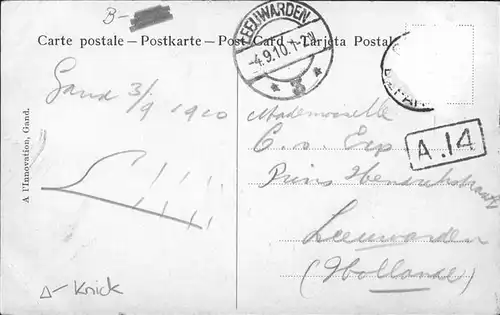 B-
Carte postale - Postkarte - Post Card - Tarjeta Postal
LEEUWARDEN
-4.9.10.1-2N
3
DEPART
Gand 3/9 1910
Mademoiselle
C. v. Erp
A.14
Prins Hendrikstraat
Leeuwarden
(Hollande)
A l'Innovation, Gand.
Δ- Knick